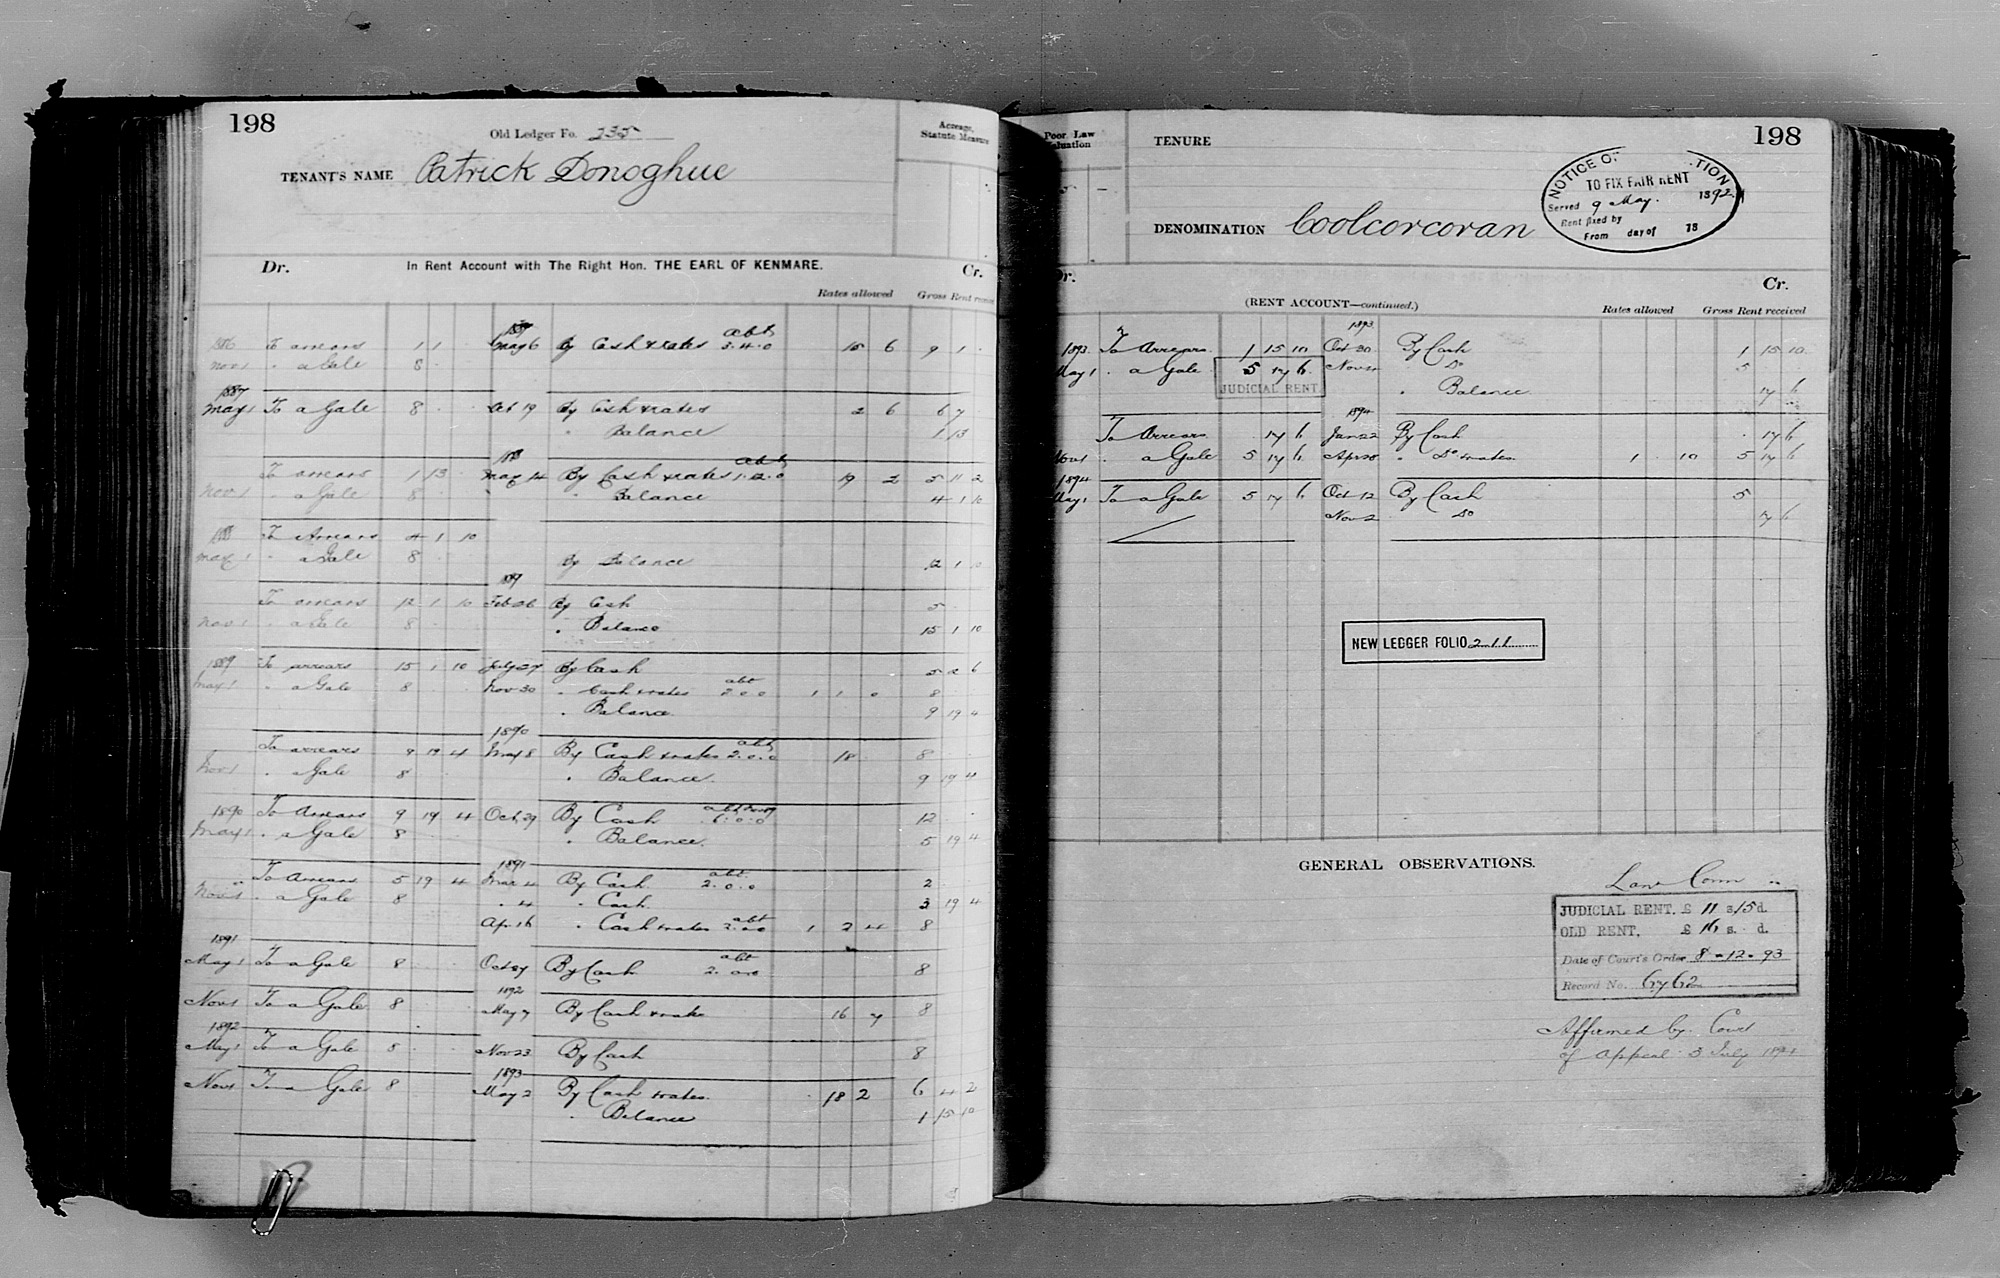 198
Old Ledger Fo. 235
Acreage, Statute Measure
TENANT'S NAME Patrick Donoghue
Dr. In Rent Account with The Right Hon. THE EARL OF KENMARE. Cr.
Rates allowed Gross Rent
1886 To arrears 1 1 May 6 By Cash & rates abt 3.4.0 15 6 9 1
Nov 1 " a Gale 8
1887
May 1 To a Gale 8 Oct 19 By Cash & rates 2 6 6 7
" Balance 1 13
1888
To arrears 1 13 May 14 By Cash & rates abt 1.12.0 19 2 5 11 2
Nov 1 " a Gale 8 " Balance 4 1 10
1888 To Arrears 4 1 10
May 1 " a Gale 8 By Balance 12 1 10
1889
To arrears 12 1 10 Feb 26 By Cash 5
Nov 1 " a Gale 8 " Balance 15 1 10
1889 To arrears 15 1 10 July 27 By Cash 5 2 6
May 1 " a Gale 8 Nov 30 " Cash & rates abt 2.0.0 1 1 0 8
" Balance 9 19 4
1890
To arrears 9 19 4 May 8 By Cash & rates abt 2.0.0 18 8
Nov 1 " a Gale 8 " Balance 9 19 4
1890 To Arrears 9 19 4 Oct 29 By Cash 12
May 1 " a Gale 8 " Balance 5 19 4
1891
To Arrears 5 19 4 Mar 4 By Cash abt 2.0.0 2
Nov 1 " a Gale 8 " 4 " Cash 3 19 4
Apr 16 " Cash & rates abt 2.0.0 1 2 4 8
1891
May 1 To a Gale 8 Oct 27 By Cash abt 2.0.0 8
1892
Nov 1 To a Gale 8 May 7 By Cash & rates 16 7 8
1892
May 1 To a Gale 8 Nov 23 By Cash 8
1893
Nov 1 To a Gale 8 May 2 By Cash & rates 18 2 6 4 2
" Balance 1 15 10
Poor Law
TENURE
198
NOTICE OF
TO FIX FAIR RENT
Served 9 May. 1892
Rent fixed by
From day of 18
DENOMINATION Coolcorcoran
Cr.
(RENT ACCOUNT—continued.)
Rates allowed Gross Rent received
1893
1893 To Arrears 1 15 10 Oct 30 By Cash 1 15 10
May 1 " a Gale 5 17 6 Nov " Do 5
JUDICIAL RENT
" Balance 17 6
1894
To Arrears 17 6 Jan 22 By Cash 17 6
Nov 1 " a Gale 5 17 6 Apr 28 " Do & rates 1 10 5 17 6
1894
May 1 To a Gale 5 17 6 Oct 12 By Cash 5
Nov 2 Do 17 6
NEW LEDGER FOLIO 211
GENERAL OBSERVATIONS.
Land Comm
JUDICIAL RENT. £ 11 s. 15 d.
OLD RENT, £ 16 s. d.
Date of Court's Order 8-12-93
Record No. 6762
Affirmed by Court
of Appeal 3 July 1894